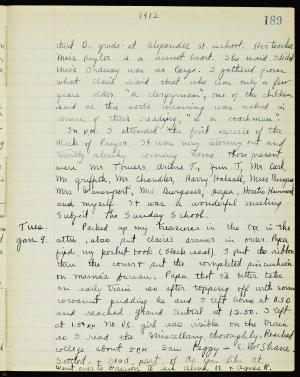 1912
189
third B. grade at Alexander St school. Her teacher
Miss Taylor is a sweet heart. She said I didn't
think Granay was so large. I gathered from
what Claire said that she was only a few
years older. "a clergyman", one of the children
said as this word's meaning was asked in
of their reading, "is a coachman".
In p.m. I attended the first service of the
Week of Prayer. It was very stormy out and
terribly windy coming home. Those present
were Mr Towers, Archie T., Jim T., Mr Carl,
Mr Griffith, Mr Chandler, Harry Halsall, Miss Burgess
Mrs Davenport, Mrs Burgesser, papa, Hortie Hammond
and myself. It was a wonderful meeting
Subject: the Sunday School.
Tues.
Jan 9.
Packed up my treasures in the box in the
attic, also put Claire's drawer in order. Papa
fixed my pocket book (black seal). I put the ribbon
thru the cover & put the completed pin cushion
on mama's bureau. Papa that I'd better take
an early train so after topping off with some
cocoanut pudding he and I left home at 11.30
and reached Grand Central at 12.50. I left
at 1.50 pm No V.C. girl was visible on the train
so I read the Miscellany, thoroughly. Reached
college about 5 P.M. Saw Peggy + K. McShane.
Settled + read part of As You Like it,
went over to Davison to see Alma K + Agnes R.